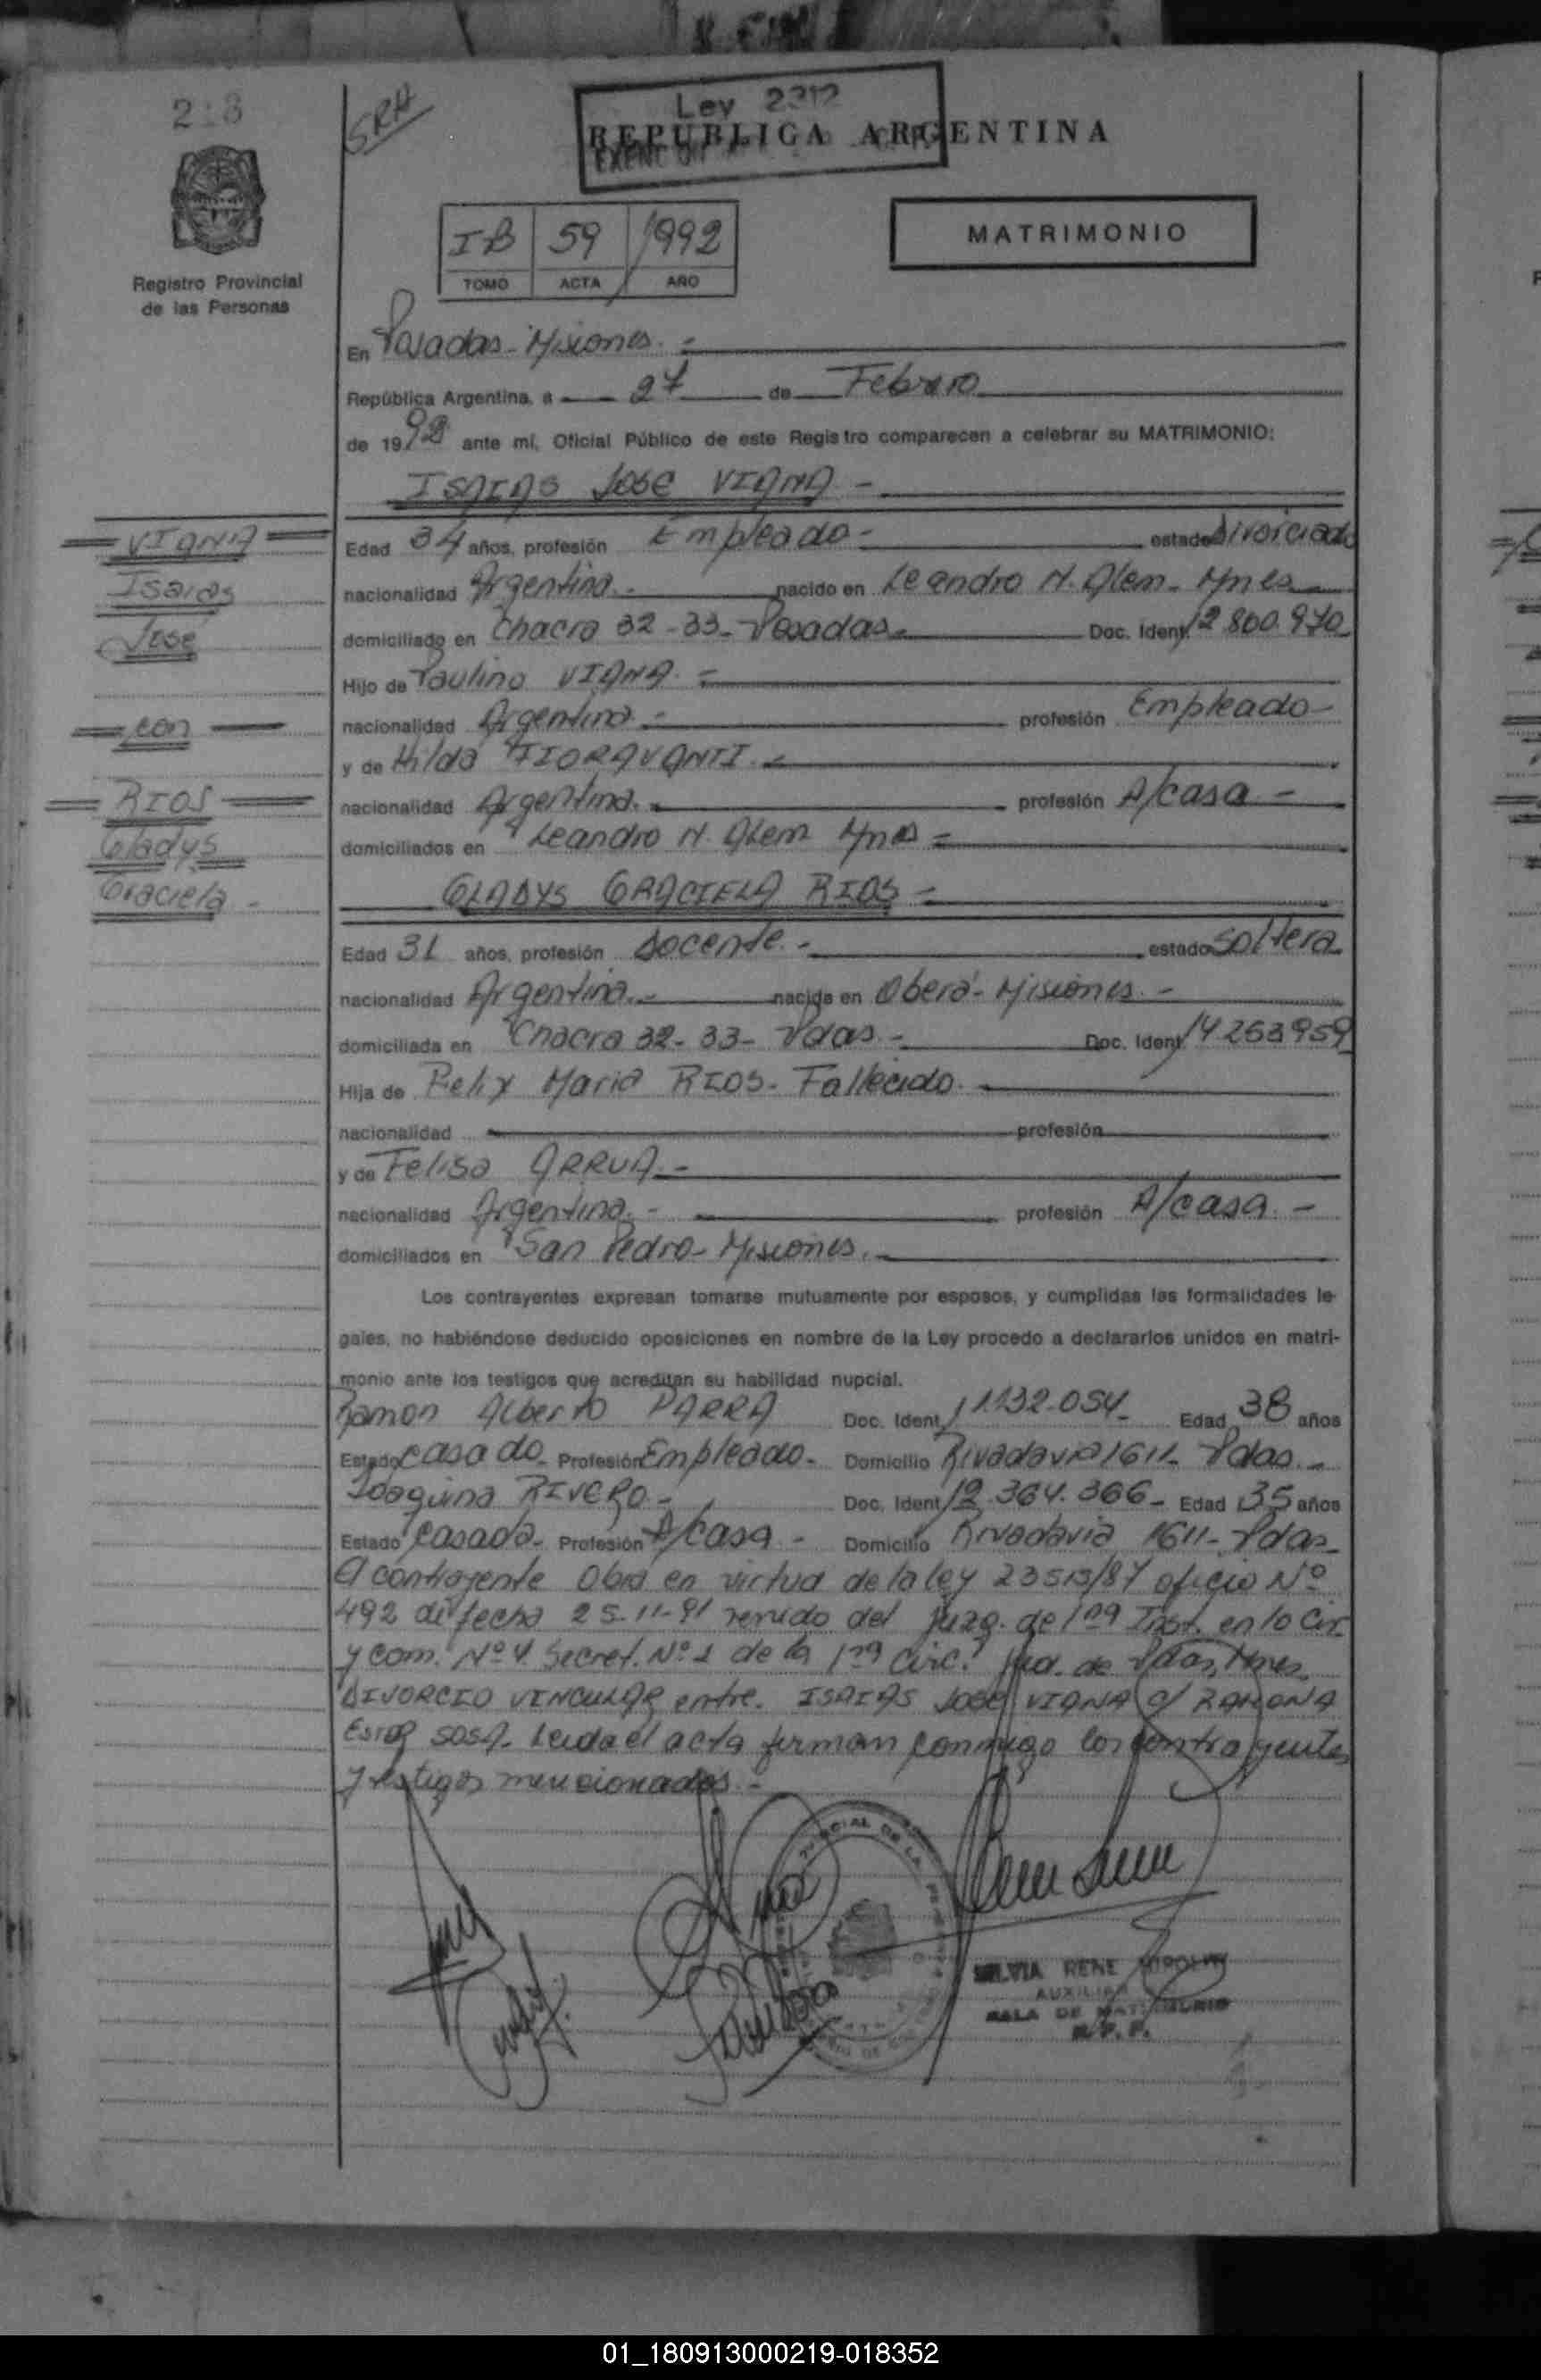 218
SRA
Ley 2312
REPUBLICA ARGENTINA
IB 59 1992
TOMO ACTA AÑO
MATRIMONIO
Registro Provincial
de las Personas
En Posadas-Misiones.-
República Argentina, a 27 de Febrero
de 1992 ante mí, Oficial Público de este Registro comparecen a celebrar su MATRIMONIO:
ISAIAS JOSE VIANA-
VIANA
Isaias
José
con
RIOS
Gladys
Graciela-
Edad 34 años, profesión Empleado- estado Divorciado
nacionalidad Argentina.- nacido en Leandro N. Alem- Mnes
domiciliado en Chacra 32-33-Posadas- Doc. Ident. 12.800.970
Hijo de Paulino VIANA.-
nacionalidad Argentina- profesión Empleado-
y de Hilda FIORAVANTI.-
nacionalidad Argentina.- profesión A/casa-
domiciliados en Leandro N. Alem Mnes-
GLADYS GRACIELA RIOS-
Edad 31 años, profesión Docente.- estado Soltera
nacionalidad Argentina.- nacida en Oberá-Misiones.-
domiciliada en Chacra 32-33-Pdas.- Doc. Ident. 14.263959
Hija de Felix Maria RIOS-Fallecido.
nacionalidad profesión
y de Felisa ARRUA.-
nacionalidad Argentina.- profesión A/casa.-
domiciliados en San Pedro-Misiones.
Los contrayentes expresan tomarse mutuamente por esposos, y cumplidas las formalidades le-
gales, no habiéndose deducido oposiciones en nombre de la Ley procedo a declararlos unidos en matri-
monio ante los testigos que acreditan su habilidad nupcial.
Ramon Alberto PARRA Doc. Ident. 11.132.054- Edad 38 años
Estado Casado- Profesión Empleado- Domicilio Rivadavia 1611- Pdas.-
Joaquina RIVERO- Doc. Ident. 12.364.366- Edad 35 años
Estado Casada- Profesión A/casa- Domicilio Rivadavia 1611-Pdas-
El contrayente Obra en virtud de la ley 23515/87 oficio Nº
492 de fecha 25-11-91 venido del Juzg. de 1ra Inst. en lo Civ.
y Com. Nº4 Secret. Nº1 de la 1ra Circ. Jud. de Pdas, Mnes.
DIVORCIO VINCULAR entre. ISAIAS JOSE VIANA c/ RAMONA
Ester SOSA. Leida el acta firman conmigo los contrayentes
y testigos mencionados.-
SILVIA RENE
AUXILIAR
SALA DE MATRIMONIO
R.P.P.
01_180913000219-018352